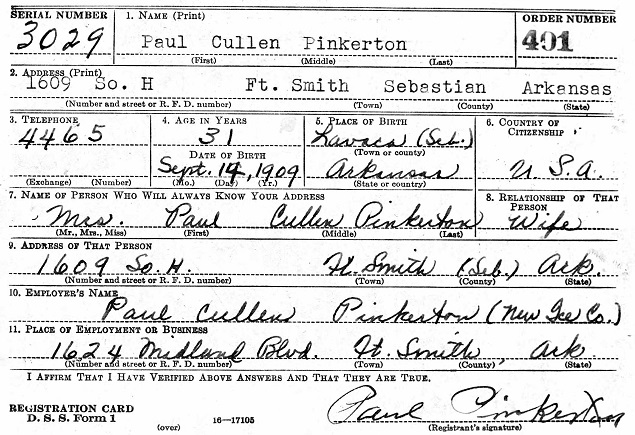 SERIAL NUMBER 1. NAME (Print) ORDER NUMBER
3029 Paul Cullen Pinkerton 491
(First) (Middle) (Last)
2. ADDRESS (Print)
1609 So. H Ft. Smith Sebastian Arkansas
(Number and street or R. F. D. number) (Town) (County) (State)
3. TELEPHONE 4. AGE IN YEARS 5. PLACE OF BIRTH 6. COUNTRY OF CITIZENSHIP
4465 31 Lavaca (Seb.)
(Town or county)
DATE OF BIRTH
Sept. 14, 1909 Arkansas U. S. A.
(Exchange) (Number) (Mo.) (Day) (Yr.) (State or country)
7. NAME OF PERSON WHO WILL ALWAYS KNOW YOUR ADDRESS 8. RELATIONSHIP OF THAT PERSON
Mrs. Paul Cullen Pinkerton Wife
(Mr., Mrs., Miss) (First) (Middle) (Last)
9. ADDRESS OF THAT PERSON
1609 So. H. Ft. Smith (Seb.) Ark.
(Number and street or R. F. D. number) (Town) (County) (State)
10. EMPLOYER'S NAME
Paul Cullen Pinkerton (New Ice Co.)
11. PLACE OF EMPLOYMENT OR BUSINESS
1624 Midland Blvd. Ft. Smith, Ark
(Number and street or R. F. D. number) (Town) (County) (State)
I AFFIRM THAT I HAVE VERIFIED ABOVE ANSWERS AND THAT THEY ARE TRUE.
REGISTRATION CARD
D. S. S. Form 1 Paul Pinkerton
(over) 16—17105 (Registrant's signature)